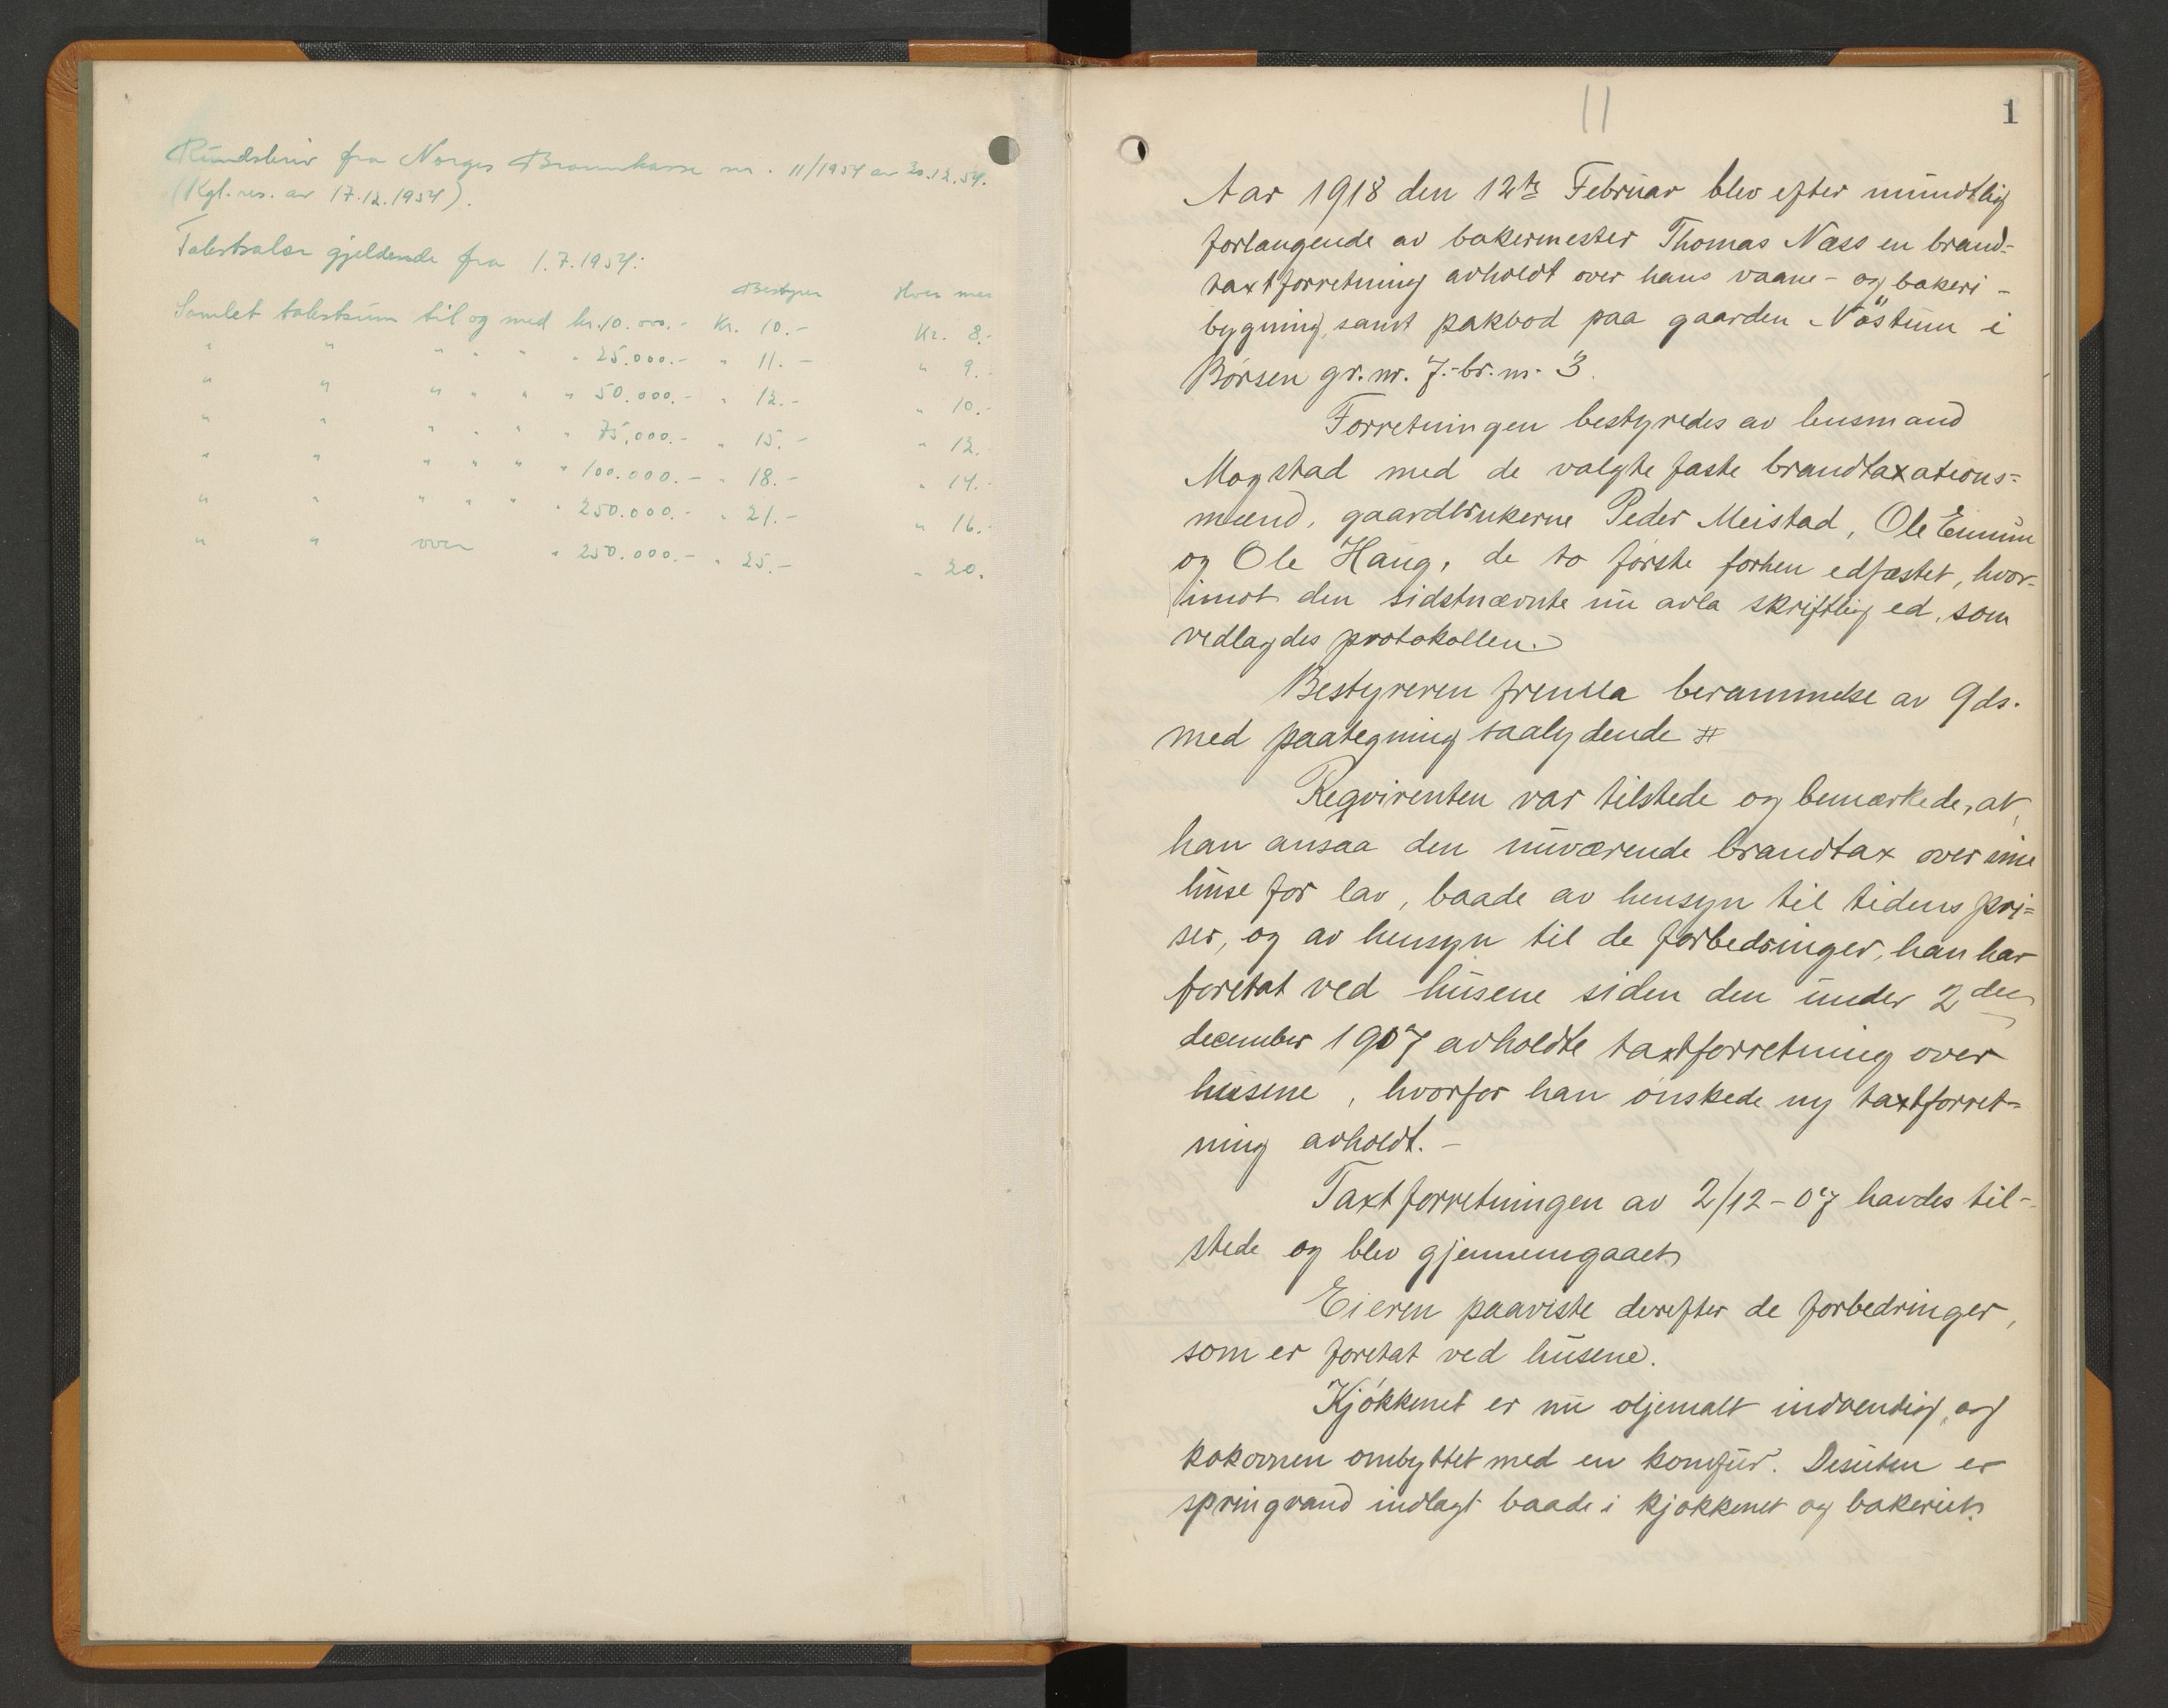 Rundskriv fra Norges Brannkasse nr. 11/1954 av 20.12.54.
(Kgl. res. av 17.12.1954).
gjeldende fra 1.7.1954:
Bestyrer Hver mann
Samlet takstsum til og med kr. 10.000.- Kr. 10.- Kr. 8.-
" " " " " " 25.000.- " 11.- " 9.-
" " " " " " 50.000.- " 12.- " 10.-
" " " " " " 75.000.- " 15.- " 12.
" " " " " " 100.000.- " 18.- " 14.-
" " " " " " 250.000.- " 21.- " 16.-
" " over " 250.000.- " 25.- " 20.
11
1
Aar 1918 den 12te Februar blev efter mundtlig
forlangende av bakermester Thomas Næss en brand-
taxtforretning avholdt over hans vaane- og bakeri-
bygning, samt pakbod paa gaarden Nöstum i
Børsen gr. nr. 7.- br. nr. 3.
Forretningen bestyredes av lensmand
Mogstad med de valgte faste brandtaxations=
mænd, gaardbrukerne Peder Meistad, Ole Eimum
og Ole Haug, de to første forhen edfæstet, hvor-
imot den sidstnævnte nu avla skriftlig ed, som
vedlagdes protokollen.
Bestyreren fremla berammelse av 9 ds.
med paategning saalydende #
Reqvirenten var tilstede og bemærkede, at
han ansaa den nuværende brandtax over sine
huse for lav, baade av hensyn til tidens pri=
ser, og av hensyn til de forbedringer, han har
foretat ved husene siden den under 2den
december 1907 avholdte taxtforretning over
husene, hvorfor han ønskede ny taxtforret=
ning avholdt. -
Taxtforretningen av 2/12-07 havdes til-
stede og blev gjennemgaaet.
Eieren paaviste derefter de forbedringer,
som er foretat ved husene.
Kjøkkenet er nu oljemalt indvendig, og
kokovnen ombyttet med en komfur. Desuten er
springvand indlagt baade i kjøkkenet og bakeriet.